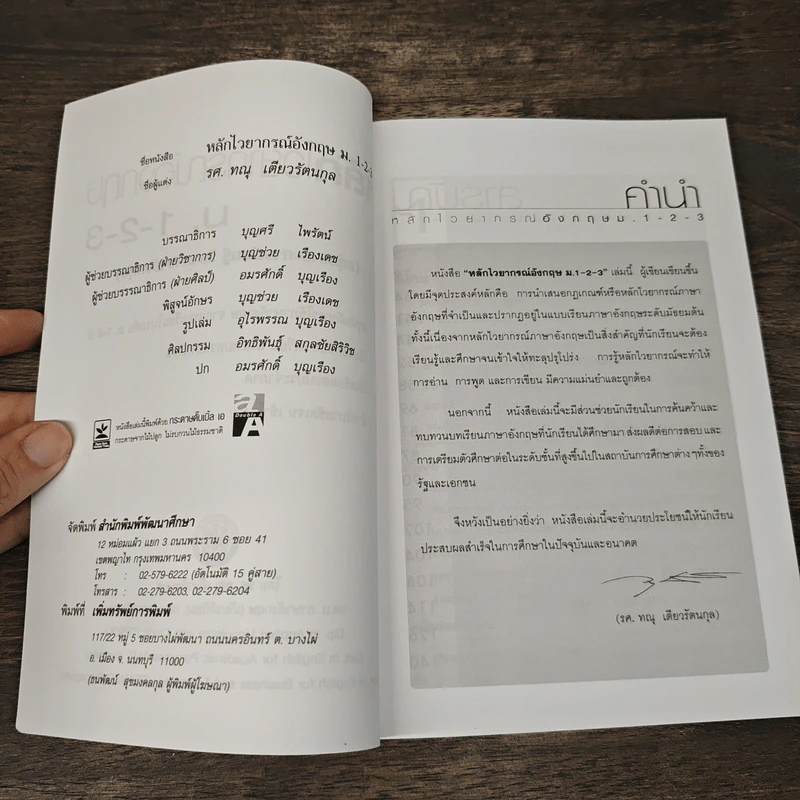 ชื่อหนังสือ หลักไวยากรณ์อังกฤษ ม. 1-2-3
ชื่อผู้แต่ง รศ. ทณุ เตียวรัตนกุล
บรรณาธิการ บุญศรี ไพรัตน์
ผู้ช่วยบรรณาธิการ (ฝ่ายวิชาการ) บุญช่วย เรืองเดช
ผู้ช่วยบรรณาธิการ (ฝ่ายศิลป์) อมรศักดิ์ บุญเรือง
พิสูจน์อักษร บุญช่วย เรืองเดช
รูปเล่ม อุไรพรรณ บุญเรือง
ศิลปกรรม อิทธิพันธุ์ สกุลชัยสิริวิช
ปก อมรศักดิ์ บุญเรือง
หนังสือเล่มนี้พิมพ์ด้วย กระดาษดั๊บเบิ้ล เอ
กระดาษจากไม้ปลูก ไม่รบกวนไม้ธรรมชาติ
Double A
จัดพิมพ์ สำนักพิมพ์พัฒนาศึกษา
12 หม่อมแผ้ว แยก 3 ถนนพระราม 6 ซอย 41
เขตพญาไท กรุงเทพมหานคร 10400
โทร : 02-579-6222 (อัตโนมัติ 15 คู่สาย)
โทรสาร : 02-279-6203, 02-279-6204
พิมพ์ที่ เพิ่มทรัพย์การพิมพ์
117/22 หมู่ 5 ซอยบางไผ่พัฒนา ถนนนครอินทร์ ต. บางไผ่
อ. เมือง จ. นนทบุรี 11000
(ธนพัฒน์ สุขมงคลกุล ผู้พิมพ์ผู้โฆษณา)
คำนำ
หลักไวยากรณ์อังกฤษม.1-2-3
หนังสือ "หลักไวยากรณ์อังกฤษ ม.1-2-3" เล่มนี้ ผู้เขียนเขียนขึ้น
โดยมีจุดประสงค์หลักคือ การนำเสนอกฎเกณฑ์หรือหลักไวยากรณ์ภาษา
อังกฤษที่จำเป็นและปรากฏอยู่ในแบบเรียนภาษาอังกฤษระดับมัธยมต้น
ทั้งนี้เนื่องจากหลักไวยากรณ์ภาษาอังกฤษเป็นสิ่งสำคัญที่นักเรียนจะต้อง
เรียนรู้และศึกษาจนเข้าใจให้ทะลุปรุโปร่ง การรู้หลักไวยากรณ์จะทำให้
การอ่าน การพูด และการเขียน มีความแม่นยำและถูกต้อง
นอกจากนี้ หนังสือเล่มนี้จะมีส่วนช่วยนักเรียนในการค้นคว้าและ
ทบทวนบทเรียนภาษาอังกฤษที่นักเรียนได้ศึกษามา ส่งผลดีต่อการสอบ และ
การเตรียมตัวศึกษาต่อในระดับชั้นที่สูงขึ้นไปในสถาบันการศึกษาต่างๆทั้งของ
รัฐและเอกชน
จึงหวังเป็นอย่างยิ่งว่า หนังสือเล่มนี้จะอำนวยประโยชน์ให้นักเรียน
ประสบผลสำเร็จในการศึกษาในปัจจุบันและอนาคต
(รศ. ทณุ เตียวรัตนกุล)